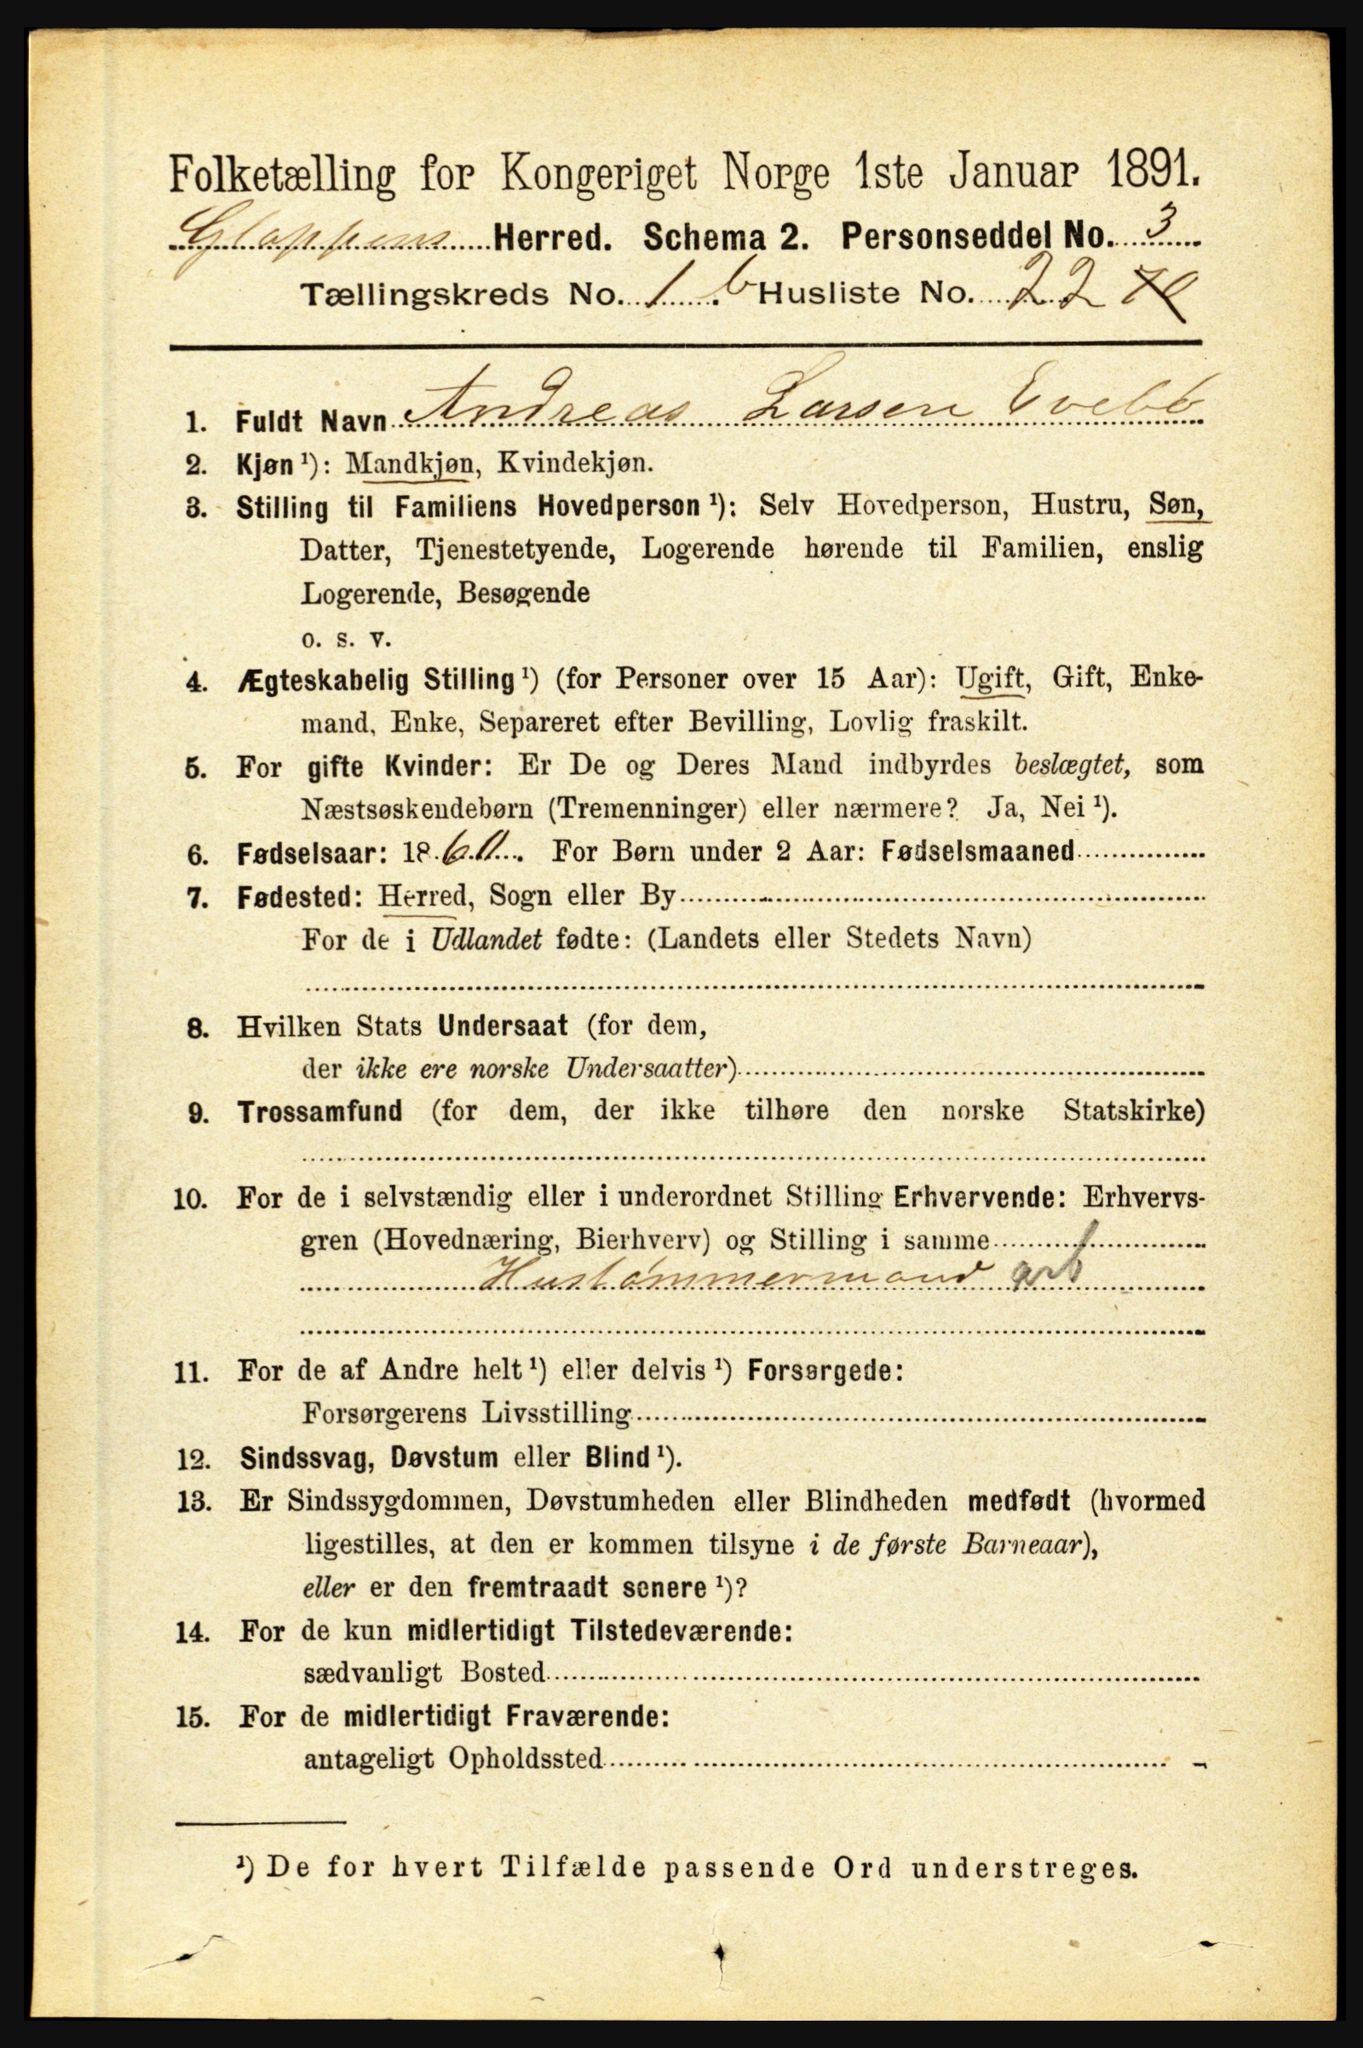 Folketælling for Kongeriget Norge 1ste Januar 1891.
Gloppens Herred. Schema 2. Personseddel No. 3
Tællingskreds No. 1 b Husliste No. 22
1. Fuldt Navn Andreas Larsen Evebb
2. Kjøn ¹): Mandkjøn, Kvindekjøn.
3. Stilling til Familiens Hovedperson ¹): Selv Hovedperson, Hustru, Søn,
Datter, Tjenestetyende, Logerende hørende til Familien, enslig
Logerende, Besøgende
o. s. v.
4. Ægteskabelig Stilling ¹) (for Personer over 15 Aar): Ugift, Gift, Enke-
mand, Enke, Separeret efter Bevilling, Lovlig fraskilt.
5. For gifte Kvinder: Er De og Deres Mand indbyrdes beslægtet, som
Næstsøskendebørn (Tremenninger) eller nærmere? Ja, Nei ¹).
6. Fødselsaar: 1860. For Børn under 2 Aar: Fødselsmaaned
7. Fødested: Herred, Sogn eller By
For de i Udlandet fødte: (Landets eller Stedets Navn)
8. Hvilken Stats Undersaat (for dem,
der ikke ere norske Undersaatter)
9. Trossamfund (for dem, der ikke tilhøre den norske Statskirke)
10. For de i selvstændig eller i underordnet Stilling Erhvervende: Erhvervs-
gren (Hovednæring, Bierhverv) og Stilling i samme
Hustømmermand arb
11. For de af Andre helt ¹) eller delvis ¹) Forsørgede:
Forsørgerens Livsstilling
12. Sindssvag, Døvstum eller Blind ¹).
13. Er Sindssygdommen, Døvstumheden eller Blindheden medfødt (hvormed
ligestilles, at den er kommen tilsyne i de første Barneaar),
eller er den fremtraadt senere ¹)?
14. For de kun midlertidigt Tilstedeværende:
sædvanligt Bosted
15. For de midlertidigt Fraværende:
antageligt Opholdssted
¹) De for hvert Tilfælde passende Ord understreges.